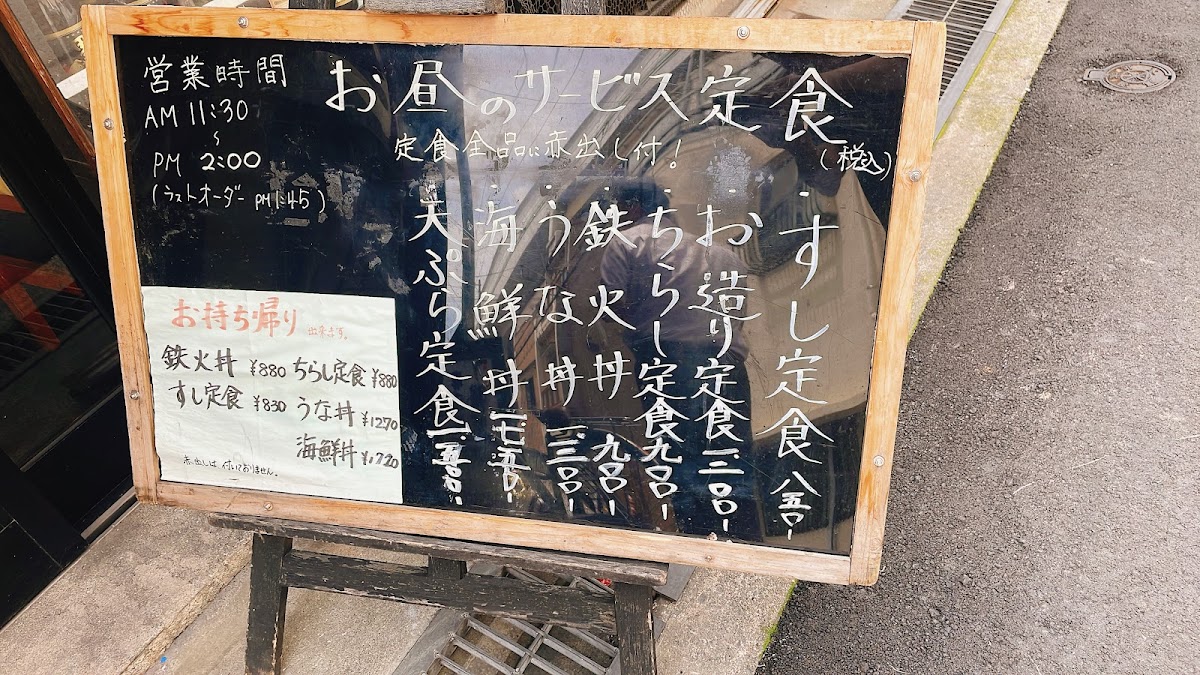 営業時間
AM 11:30
〜
PM 2:00
(ラストオーダー PM 1:45)
お昼のサービス定食
(税込)
定食全品に赤出し付!
・すし定食 八五〇-
・お造り定食 一、二〇〇-
・ちらし定食 九〇〇-
・鉄火丼 九〇〇-
・うな丼 一、三〇〇-
・海鮮丼 一、七五〇-
・天ぷら定食 一、五〇〇-
お持ち帰り 出来ます。
鉄火丼 ¥880 ちらし定食 ¥880
すし定食 ¥830 うな丼 ¥1270
海鮮丼 ¥1,720
赤出しは付いておりません。